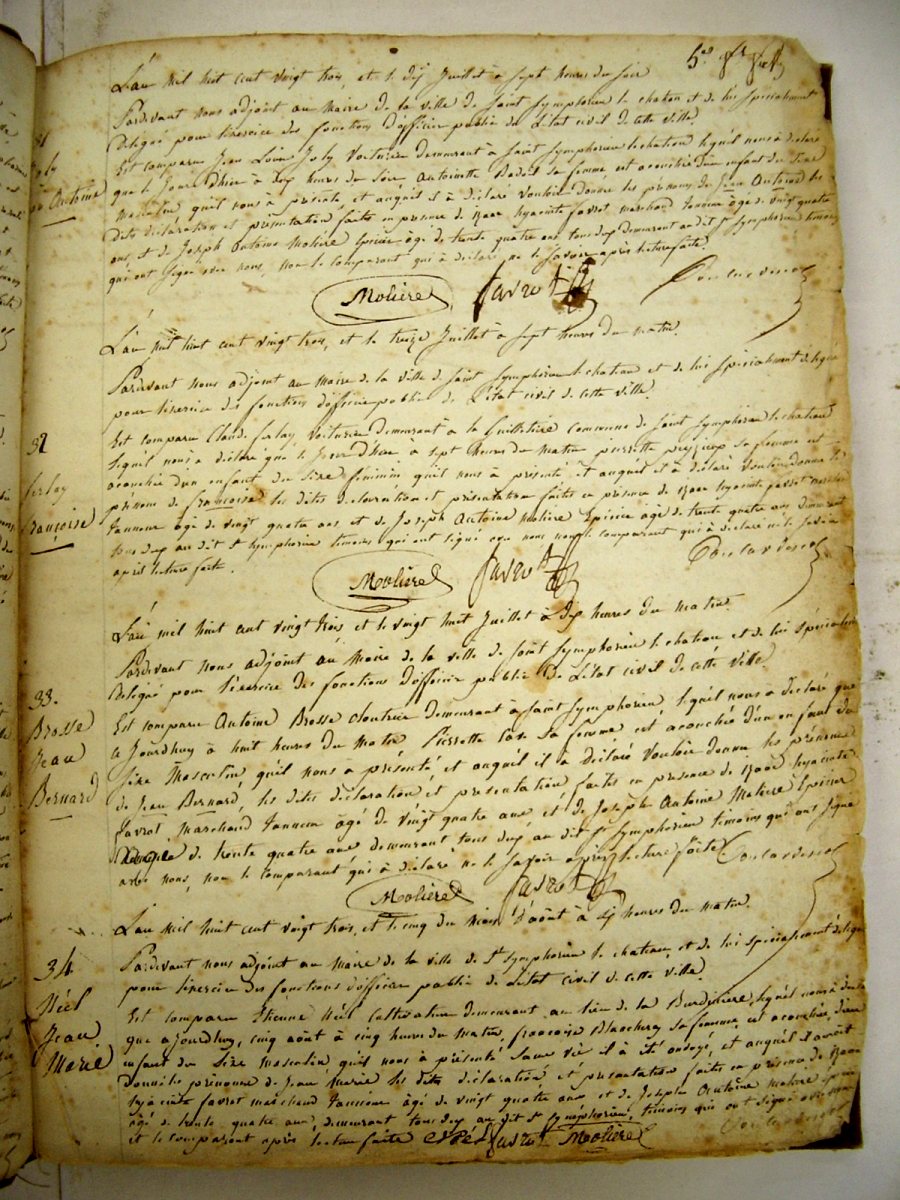 L'an mil huit cent vingt trois, et le dix Juillet à sept heures du soir
Pardevant nous adjoint au Maire de la ville de Saint Symphorien le chateau et de lui spécialement
délégué pour l'exercice des fonctions d'officier public de l'état civil de cette ville.
31
Joly
Antoine
Est comparu Jean Joly Voiturier demeurant à Saint Symphorien le chateau lequel nous a déclaré
que le Jour d'hier à heures du soir Antoinette sa femme, est acouchée d'un enfant du sexe
masculin qu'il nous à présenté, et auquel il à déclaré vouloir donner les prénoms de Jean Antoine les
dites déclaration et présentation faites en présence de hyacinte favrot marchand tanneur âgé de vingt quatre
ans, et de Joseph Antoine Molière Epicier âgé de trente quatre ans tous deux demeurant au dit St Symphorien témoins
qui ont signé avec nous, non le comparant qui à déclaré ne le savoir après lecture faite.
Molière favrot
L'an mil huit cent vingt trois, et le treize Juillet à sept heures du matin.
Pardevant nous adjoint au Maire de la ville de Saint Symphorien le chateau et de lui spécialement délégué
pour l'exercice des fonctions d'officier public de l'état civil de cette ville.
32
ferlay
françoise
Est comparu Claude ferlay, Voiturier demeurant à la Guillotière commune de Saint Symphorien le chateau
lequel nous a déclaré que le Jour d'hier, à sept heures du matin pierrette sa femme est
acouchée d'un enfant du sexe féminin qu'il nous à présenté et auquel il à déclaré vouloir donner le
prénom de françoise les dites déclaration et présentation faites en présence de hyacinte favrot marchand
tanneur âgé de vingt quatre ans et de Joseph Antoine Molière Epicier âgé de trente quatre ans demeurant
tous deux au dit St Symphorien témoins qui ont signé avec nous non le comparant qui à déclaré ne le savoir
après lecture faite.
Molière favrot
L'an mil huit cent vingt trois et le vingt huit Juillet à dix heures du matin.
Pardevant nous adjoint au Maire de la ville de Saint Symphorien le chateau et de lui spécialement
délégué pour l'exercice des fonctions d'officier public de l'état civil de cette ville.
33.
Brosse
Jean
Bernard
Est comparu Antoine Brosse cloutrier demeurant à Saint Symphorien, lequel nous a déclaré que
ce Jourdhuy à huit heures du matin Pierrette sa femme est acouchée d'un enfant du
sexe Masculin, qu'il nous à présenté, et auquel il à déclaré vouloir donner les prénoms
de Jean Bernard, les dites déclaration et présentation faites en présence de hyacinte
favrot, Marchand tanneur âgé de vingt quatre ans et de Joseph Antoine Molière Epicier
de trente quatre ans demeurant tous deux au dit St Symphorien témoins qui ont signé
avec nous, non le comparant qui à déclaré ne le savoir après lecture faite.
Molière favrot
L'an mil huit cent vingt trois, et le cinq du mois d'août à heures du matin.
Pardevant nous adjoint au Maire de la ville de St Symphorien le chateau, et de lui spécialement délégué
pour l'exercice des fonctions d'officier public de l'état civil de cette ville.
34
Néel
Jean
Marie
Est comparu Etienne Néel Cultivateur demeurant au lieu de la lequel nous à déclaré
que ajourdhuy, cinq août à cinq heures du matin, françoise sa femme, est acouchée d'un
enfant du sexe masculin, qu'il nous à présenté sans vie il à été ondoyé, et auquel il avoit
prénoms de Jean Marie les dites déclaration et présentation faites en présence de
hyacinte favrot marchand tanneur âgé de vingt quatre ans et de Joseph Antoine Molière
âgé de trente quatre ans, demeurant tous deux au dit St Symphorien, témoins qui ont signé avec nous
et le comparant après lecture faite favrot Molière